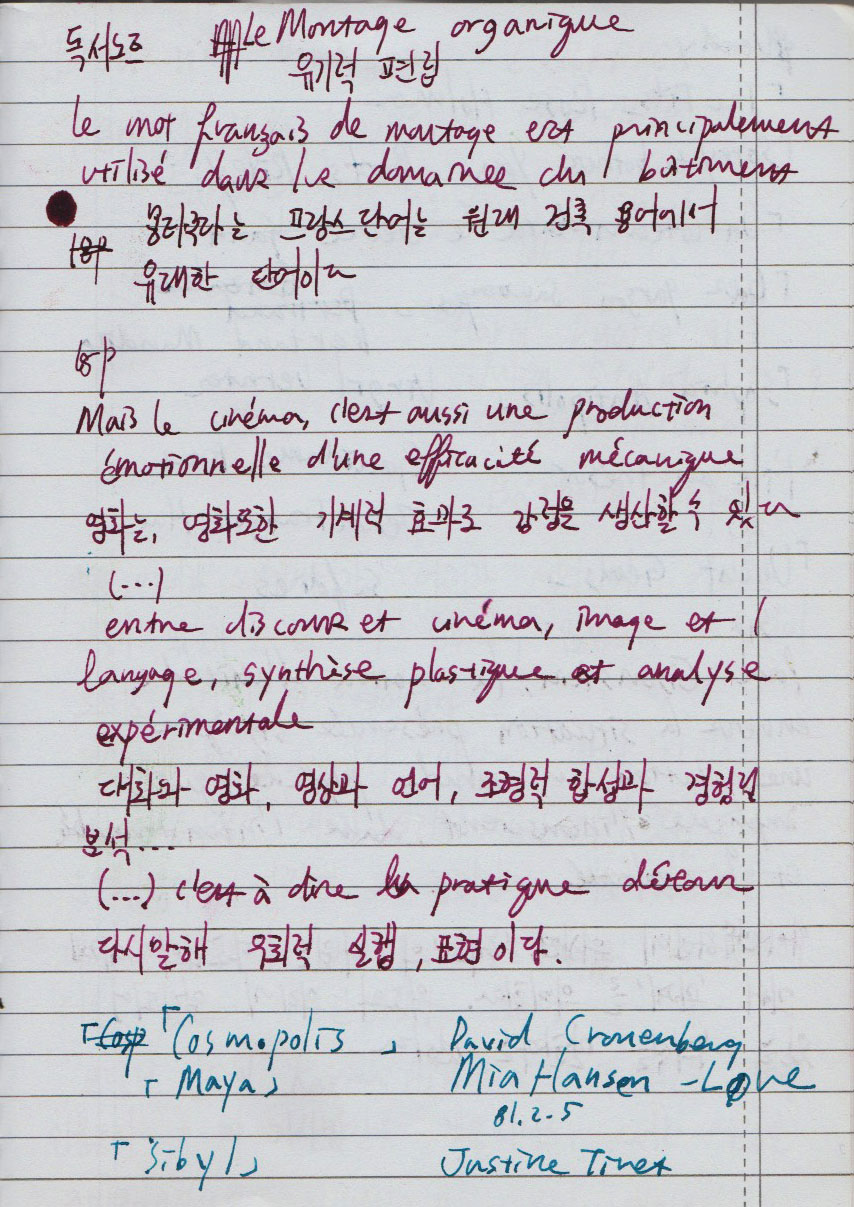 독서노트 Le Montage organique
유기적 편집
le mot français de montage est principalement
utilisé dans le domaine du bâtiment
몽타주라는 프랑스 단어는 원래 건축 용어에서
유래한 단어이다
18p
Mais le cinéma, c'est aussi une production
émotionnelle d'une efficacité mécanique
영화는, 영화또한 기계적 효과로 감정을 생산할 수 있다
(...)
entre discours et cinéma, image et l
langage, synthèse plastique et analyse
expérimentale
대화와 영화, 영상과 언어, 조형적 합성과 경험적
분석...
(...) c'est à dire la pratique détour
다시말해 우회적 실캡, 표현이다.
「Cosmopolis」 David Cronenberg
「Maya」 Mia Hansen-Løve
81.2-5
「Sibyl」 Justine Triet